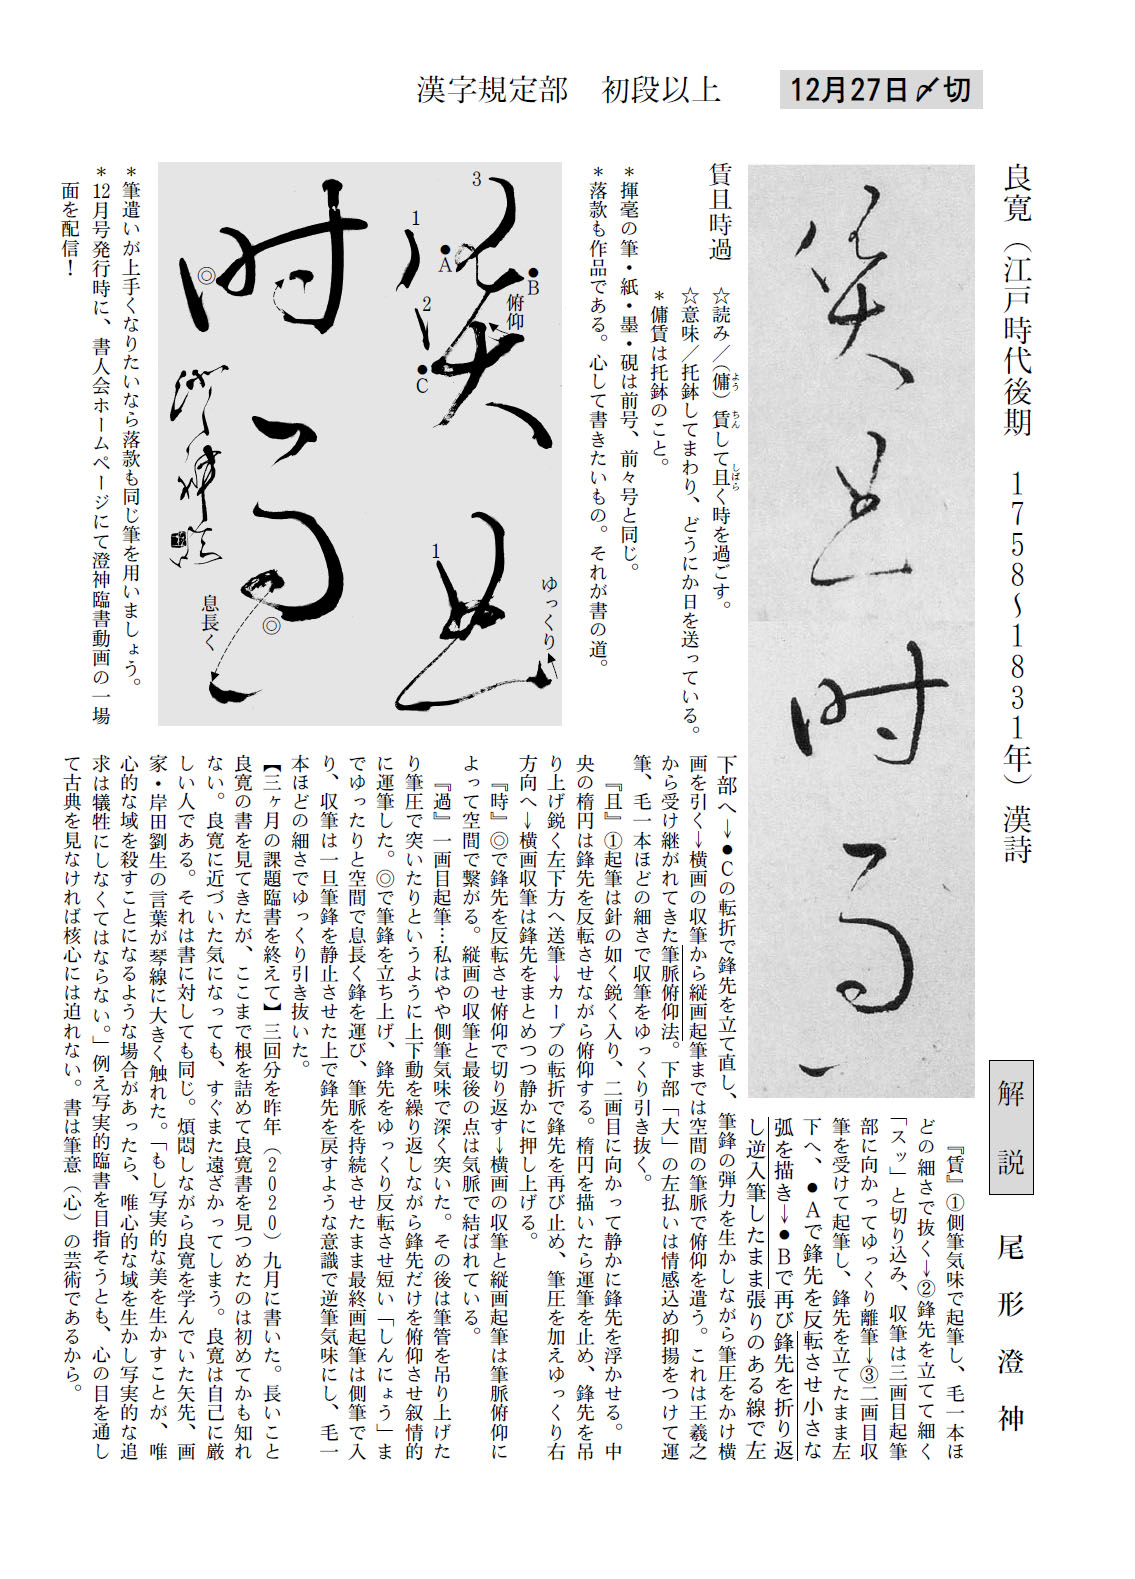 12月27日〆切
漢字規定部　初段以上
良寛（江戸時代後期　1758〜1831年）漢詩
賃且時過
☆読み／（傭）賃して且く時を過ごす。
よう
ちん
しばら
☆意味／托鉢してまわり、どうにか日を送っている。
＊傭賃は托鉢のこと。
＊揮毫の筆・紙・墨・硯は前号、前々号と同じ。
＊落款も作品である。心して書きたいもの。それが書の道。
3
1
●A
●B
俯仰
2
●C
1
ゆっくり
◎
◎
息長く
＊筆遣いが上手くなりたいなら落款も同じ筆を用いましょう。
＊12月号発行時に、書人会ホームページにて澄神臨書動画の一場
面を配信！
解説
尾形澄神
『賃』①側筆気味で起筆し、毛一本ほ
どの細さで抜く→②鋒先を立てて細く
「スッ」と切り込み、収筆は三画目起筆
部に向かってゆっくり離筆→③二画目収
筆を受けて起筆し、鋒先を立てたまま左
下へ、●Aで鋒先を反転させ小さな
弧を描き→●Bで再び鋒先を折り返
し逆入筆したまま張りのある線で左
下部へ→●Cの転折で鋒先を立て直し、筆鋒の弾力を生かしながら筆圧をかけ横
画を引く→横画の収筆から縦画起筆までは空間の筆脈で俯仰を遣う。これは王羲之
から受け継がれてきた筆脈俯仰法。下部「大」の左払いは情感込め抑揚をつけて運
筆、毛一本ほどの細さで収筆をゆっくり引き抜く。
『且』①起筆は針の如く鋭く入り、二画目に向かって静かに鋒先を浮かせる。中
央の楕円は鋒先を反転させながら俯仰する。楕円を描いたら運筆を止め、鋒先を吊
り上げ鋭く左下方へ送筆→カーブの転折で鋒先を再び止め、筆圧を加えゆっくり右
方向へ→横画収筆は鋒先をまとめつつ静かに押し上げる。
『時』◎で鋒先を反転させ俯仰で切り返す→横画の収筆と縦画起筆は筆脈俯仰に
よって空間で繋がる。縦画の収筆と最後の点は気脈で結ばれている。
『過』一画目起筆…私はやや側筆気味で深く突いた。その後は筆管を吊り上げた
り筆圧で突いたりというように上下動を繰り返しながら鋒先だけを俯仰させ叙情的
に運筆した。◎で筆鋒を立ち上げ、鋒先をゆっくり反転させ短い「しんにょう」ま
でゆったりと空間で息長く鋒を運び、筆脈を持続させたまま最終画起筆は側筆で入
り、収筆は一旦筆鋒を静止させた上で鋒先を戻すような意識で逆筆気味にし、毛一
本ほどの細さでゆっくり引き抜いた。
【三ヶ月の課題臨書を終えて】三回分を昨年（2020）九月に書いた。長いこと
良寛の書を見てきたが、ここまで根を詰めて良寛書を見つめたのは初めてかも知れ
ない。良寛に近づいた気になっても、すぐまた遠ざかってしまう。良寛は自己に厳
しい人である。それは書に対しても同じ。煩悶しながら良寛を学んでいた矢先、画
家・岸田劉生の言葉が琴線に大きく触れた。「もし写実的な美を生かすことが、唯
心的な域を殺すことになるような場合があったら、唯心的な域を生かし写実的な追
求は犠牲にしなくてはならない。」例え写実的臨書を目指そうとも、心の目を通し
て古典を見なければ核心には迫れない。書は筆意（心）の芸術であるから。